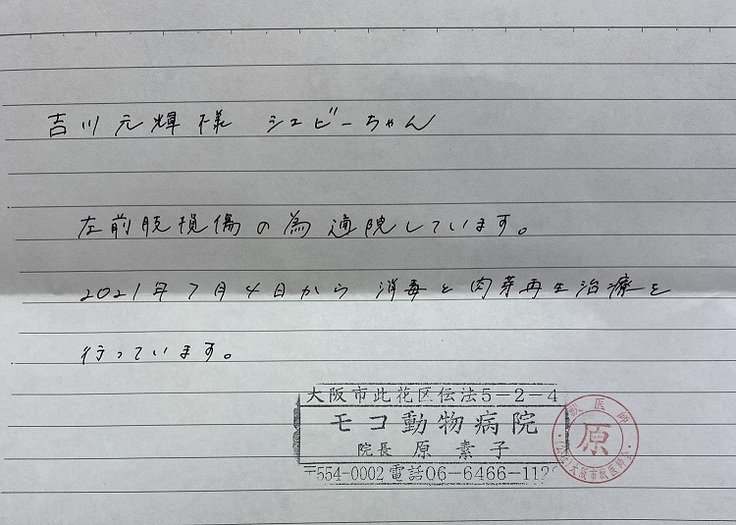 吉川元輝様 シェビーちゃん
左前肢損傷の為通院しています。
2021年7月4日から 消毒と肉芽再生治療を
行っています。
大阪市此花区伝法5-2-4
モコ動物病院
院長 原 素子
〒554-0002 電話06-6466-112
獣医師
原
大阪市獣医師会